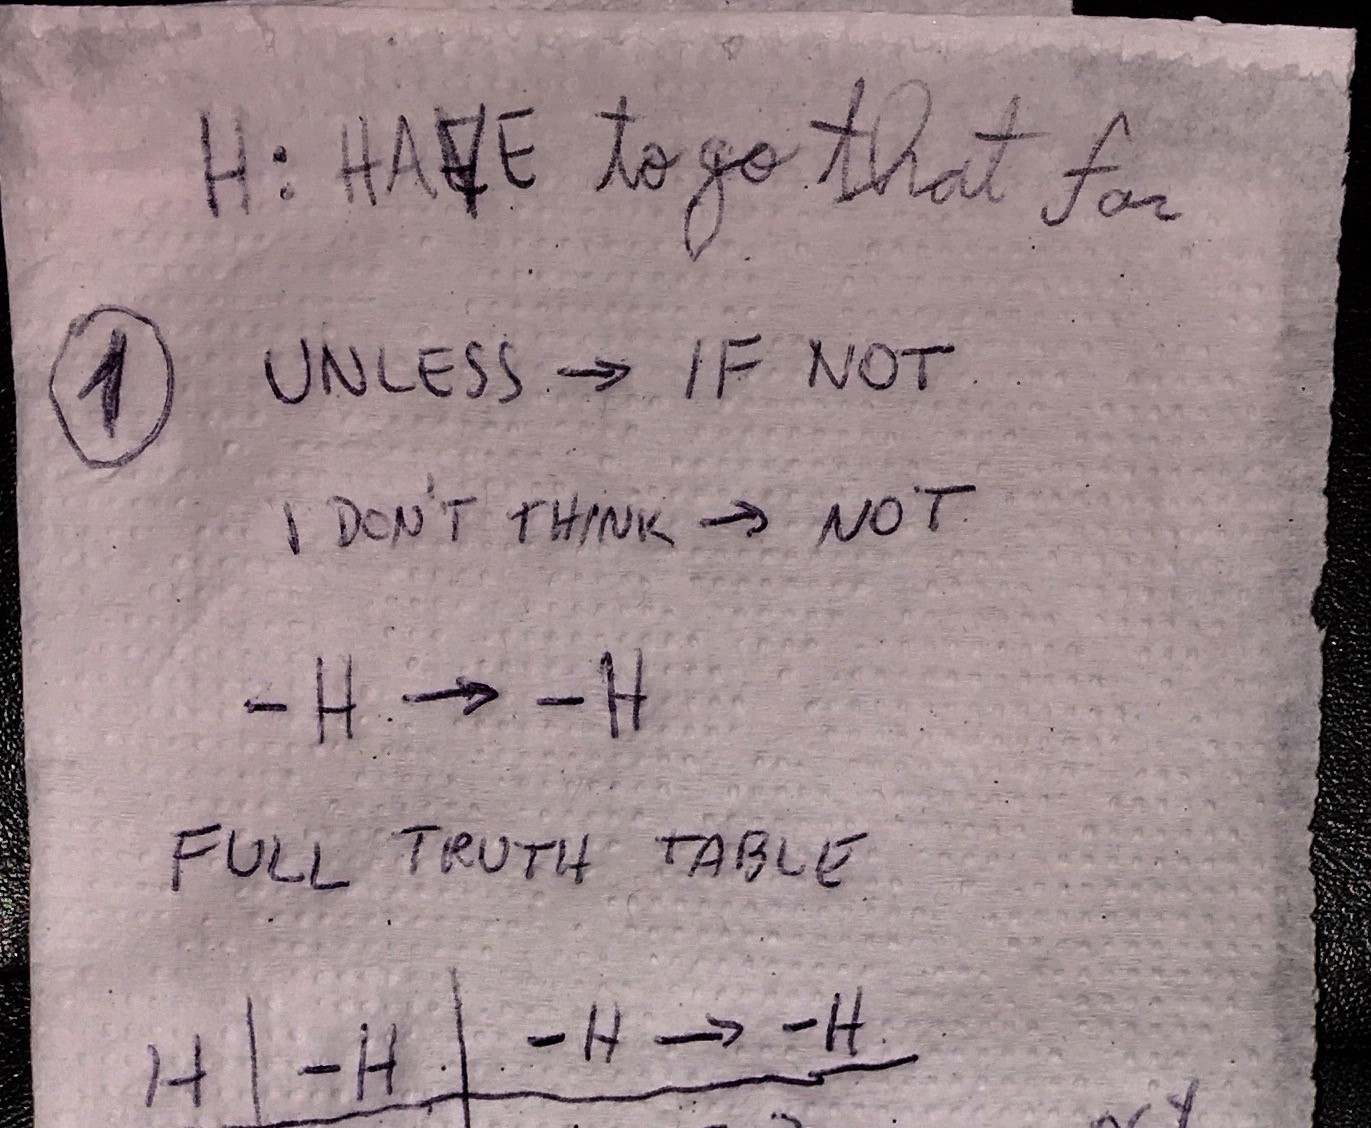 H: HAVE to go that far
1 UNLESS → IF NOT
I DON'T THINK → NOT
-H → -H
FULL TRUTH TABLE
H | -H | -H → -H